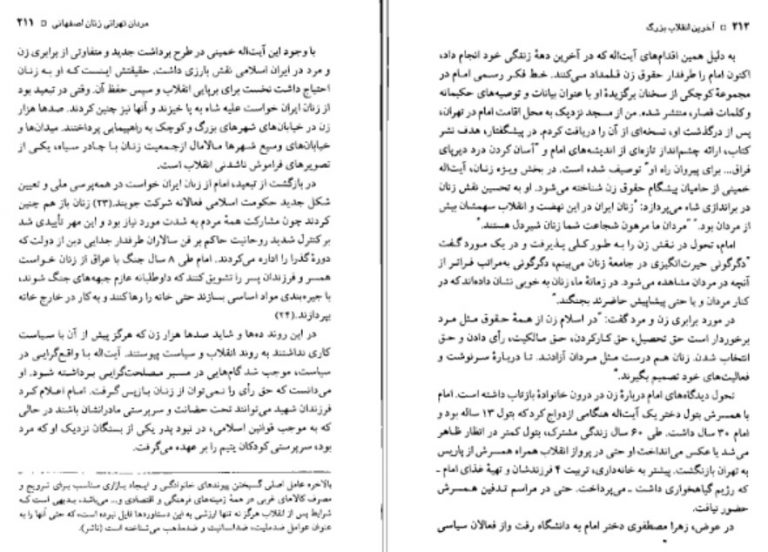 مردان تهرانی زنان اصفهانی □ ۲۱۱
با وجود این آیت‌اله خمینی در طرح برداشت جدید و متفاوتی از برابری زن
و مرد در ایران اسلامی نقش بارزی داشت. حقیقتش اینست که او به زنان
احتیاج داشت نخست برای برپایی انقلاب و سپس حفظ آن. وقتی در تبعید بود
از زنان ایران خواست علیه شاه به پا خیزند و آنها نیز چنین کردند. صدها هزار
زن در خیابان‌های شهرهای بزرگ و کوچک به راهپیمایی پرداختند. میدان‌ها و
خیابان‌های وسیع شهرها مالامال ازجمعیت زنان با چادر سیاه، یکی از
تصویرهای فراموش ناشدنی انقلاب است.
در بازگشت از تبعید، امام از زنان ایران خواست در همه‌پرسی ملی و تعیین
شکل جدید حکومت اسلامی فعالانه شرکت جویند.(۲۳) زنان باز هم چنین
کردند چون مشارکت همهٔ مردم به شدت مورد نیاز بود و این مهر تأییدی شد
بر کنترل شدید روحانیت حاکم بر فن سالاران طرفدار جدایی دین از دولت که
دورهٔ گذرا را اداره می‌کردند. امام طی ۸ سال جنگ با عراق از زنان خواست
همسر و فرزندان پسر را تشویق کنند که داوطلبانه عازم جبهه‌های جنگ شوند،
با جیره‌بندی مواد اساسی بسازند حتی خانه را رها کنند و به کار در خارج خانه
بپردازند.(۲۴)
در این روند ده‌ها و شاید صدها هزار زن که هرگز پیش از آن با سیاست
کاری نداشتند به روند انقلاب و سیاست پیوستند. آیت‌اله با واقع‌گرایی در
سیاست، موجب شد گام‌هایی در مسیر مصلحت‌گرایی برداشته شود. او
می‌دانست که حق رأی را نمی‌توان از زنان بازپس گرفت. امام اعلام کرد
فرزندان شهید می‌توانند تحت حضانت و سرپرستی مادرانشان باشند در حالی
که به موجب قوانین اسلامی، در نبود پدر یکی از بستگان نزدیک او که مرد
بود، سرپرستی کودکان یتیم را بر عهده می‌گرفت.
بالاخره عامل اصلی گسیختن پیوندهای خانوادگی و ایجاد بازاری مناسب برای ترویج و
مصرف کالاهای غربی در همهٔ زمینه‌های فرهنگی و اقتصادی و... می‌باشد. بدیهی است که
شرایط پس از انقلاب هرگز نه تنها ارزشی به این دستاوردها قایل نبرده است؛ که حتی آنها را به
عنوان عوامل ضدملیت، ضدانسانیت و ضدمذهب می‌شناخته است (ناشر).
۲۱۲ □ آخرین انقلاب بزرگ
به دلیل همین اقدام‌های آیت‌اله که در آخرین دههٔ زندگی خود انجام داد،
اکنون امام را طرفدار حقوق زن قلمداد می‌کنند. خط فکر رسمی امام در
مجموعهٔ کوچکی از سخنان برگزیدهٔ او با عنوان بیانات و توصیه‌های حکیمانه
و کلمات قصار، منتشر شده. من از مسجد نزدیک به محل اقامت امام در تهران،
پس از درگذشت او، نسخه‌ای از آن را دریافت کردم. در پیشگفتار، هدف نشر
کتاب، ارائه چشم‌انداز تازه‌ای از اندیشه‌های امام و "آسان کردن درد دیرپای
فراق... برای پیروان راه او" توصیف شده است. در بخش ویژه زنان، آیت‌اله
خمینی از حامیان پیشگام حقوق زن شناخته می‌شود. او به تحسین نقش زنان
در براندازی شاه می‌پردازد: "زنان ایران در این نهضت و انقلاب سهمشان بیش
از مردان بود." "مردان ما مرهون شجاعت شما زنان شیردل هستند."
امام، تحول در نقش زن را به طور کلی پذیرفت و در یک مورد گفت
"دگرگونی حیرت‌انگیزی در جامعهٔ زنان می‌بینم، دگرگونی به‌مراتب فراتر از
آنچه در مردان مشاهده می‌شود. در زمانهٔ ما، زنان به خوبی نشان داده‌اند که در
کنار مردان و یا حتی پیشاپیش حاضرند بجنگند."
در مورد برابری زن و مرد گفت: "در اسلام زن از همهٔ حقوق مثل مرد
برخوردار است حق تحصیل، حق کارکردن، حق مالکیت، رأی دادن و حق
انتخاب شدن. زنان هم درست مثل مردان آزادند. تا دربارهٔ سرنوشت و
فعالیت‌های خود تصمیم بگیرند."
تحول دیدگاه‌های امام دربارهٔ زن در درون خانوادهٔ بازتاب داشته است. امام
با همسرش بتول دختر یک آیت‌اله هنگامی ازدواج کرد که بتول ۱۳ ساله بود و
امام ۳۰ سال داشت. طی ۶۰ سال زندگی مشترک، بتول کمتر در انظار ظاهر
می‌شد یا عکس می‌انداخت او حتی در پرواز انقلاب همراه همسرش از پاریس
به تهران بازنگشت. بیشتر به خانه‌داری، تربیت ۴ فرزندشان و تهیهٔ غذای امام ـ
که رژیم گیاهخواری داشت ـ می‌پرداخت. حتی در مراسم تدفین همسرش
حضور نیافت.
در عوض، زهرا مصطفوی دختر امام به دانشگاه رفت واز فعالان سیاسی